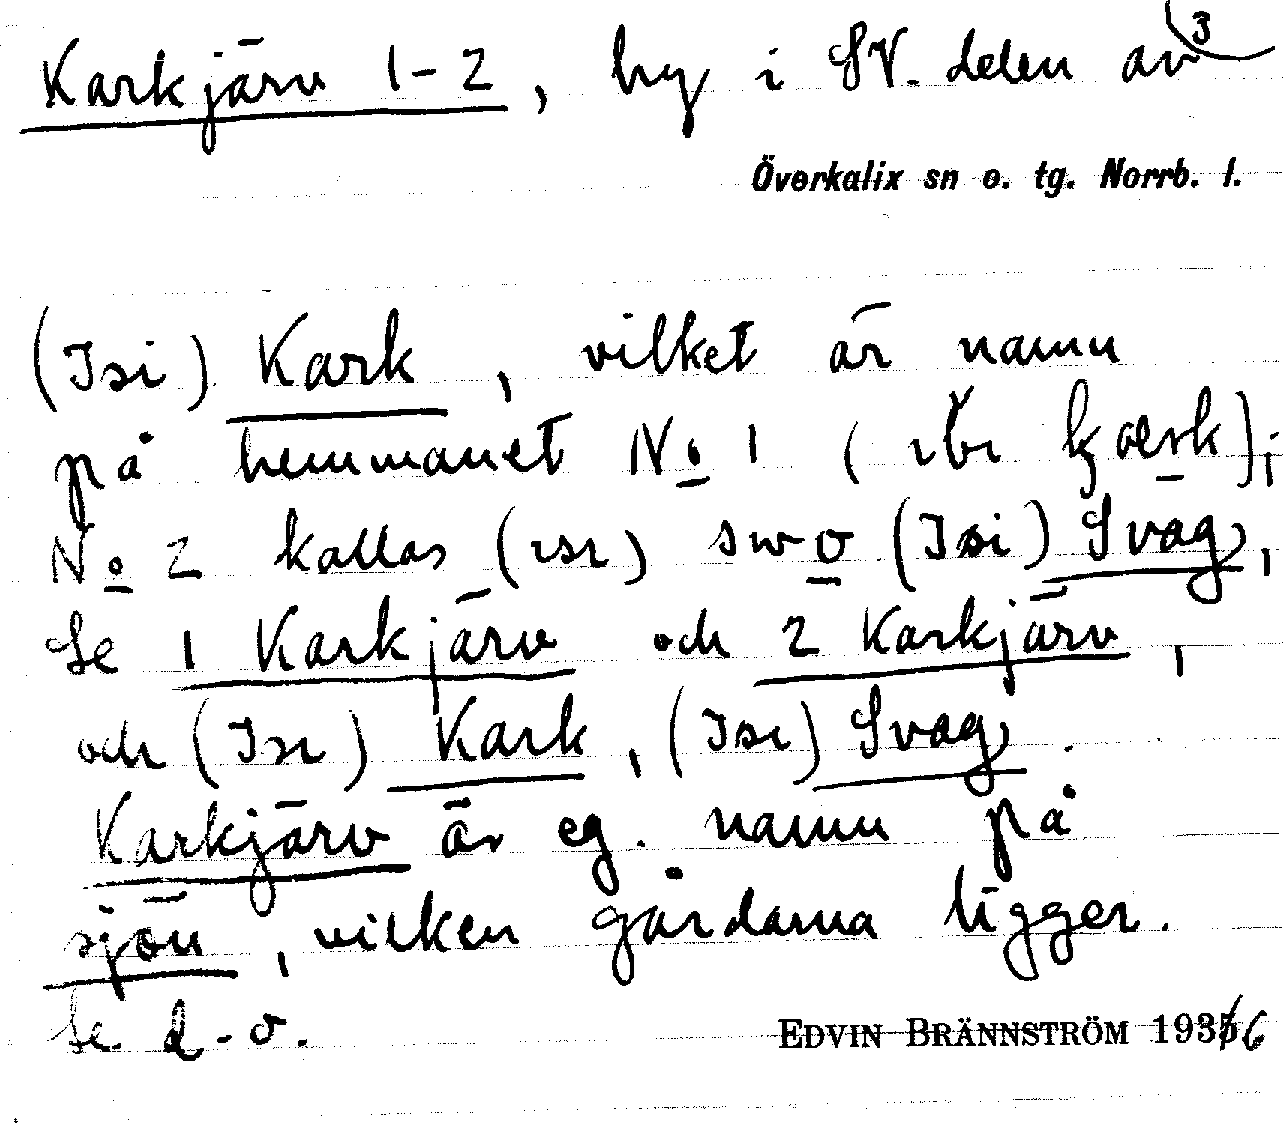 Karkjärv 1-2, by i SV. delen av 3
Överkalix sn o. tg. Norrb. l.
(Isi) Kark, vilket är namn
på hemmanet No 1 (
No 2 kallas (Isi) (Isi) Svag,
Se 1 Karkjärv och 2 Karkjärv,
och (Isi) Kark, (Isi) Svag.
Karkjärv är eg. namn på
sjön, vilken gårdarna ligger.
Se d-o.
EDVIN BRÄNNSTRÖM 1936